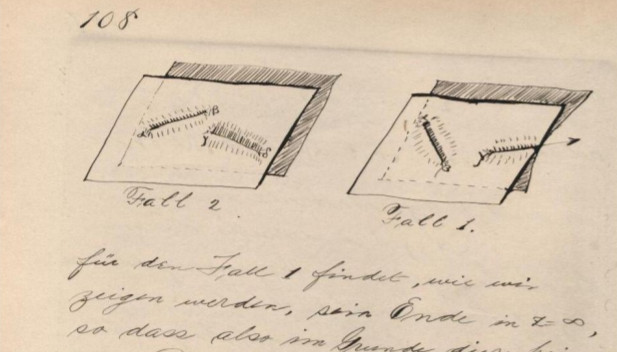 108
α β γ δ
γ
Fall 2.
Fall 1.
für den Fall 1 findet, wie wir
zeigen werden, sein Ende in z=∞,
so dass also im Grunde